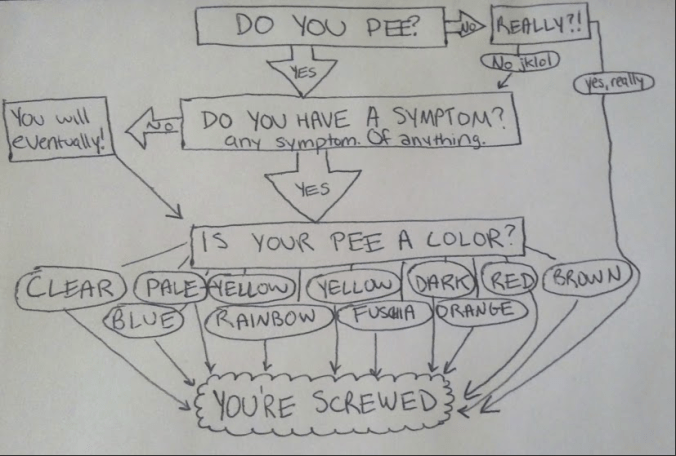 DO YOU PEE?
NO
REALLY?!
YES
No jklol
yes, really
You will
eventually!
NO
DO YOU HAVE A SYMPTOM?
any symptom. Of anything.
YES
IS YOUR PEE A COLOR?
CLEAR
PALE YELLOW
YELLOW
DARK
RED
BROWN
BLUE
RAINBOW
FUSCHIA
ORANGE
YOU'RE SCREWED